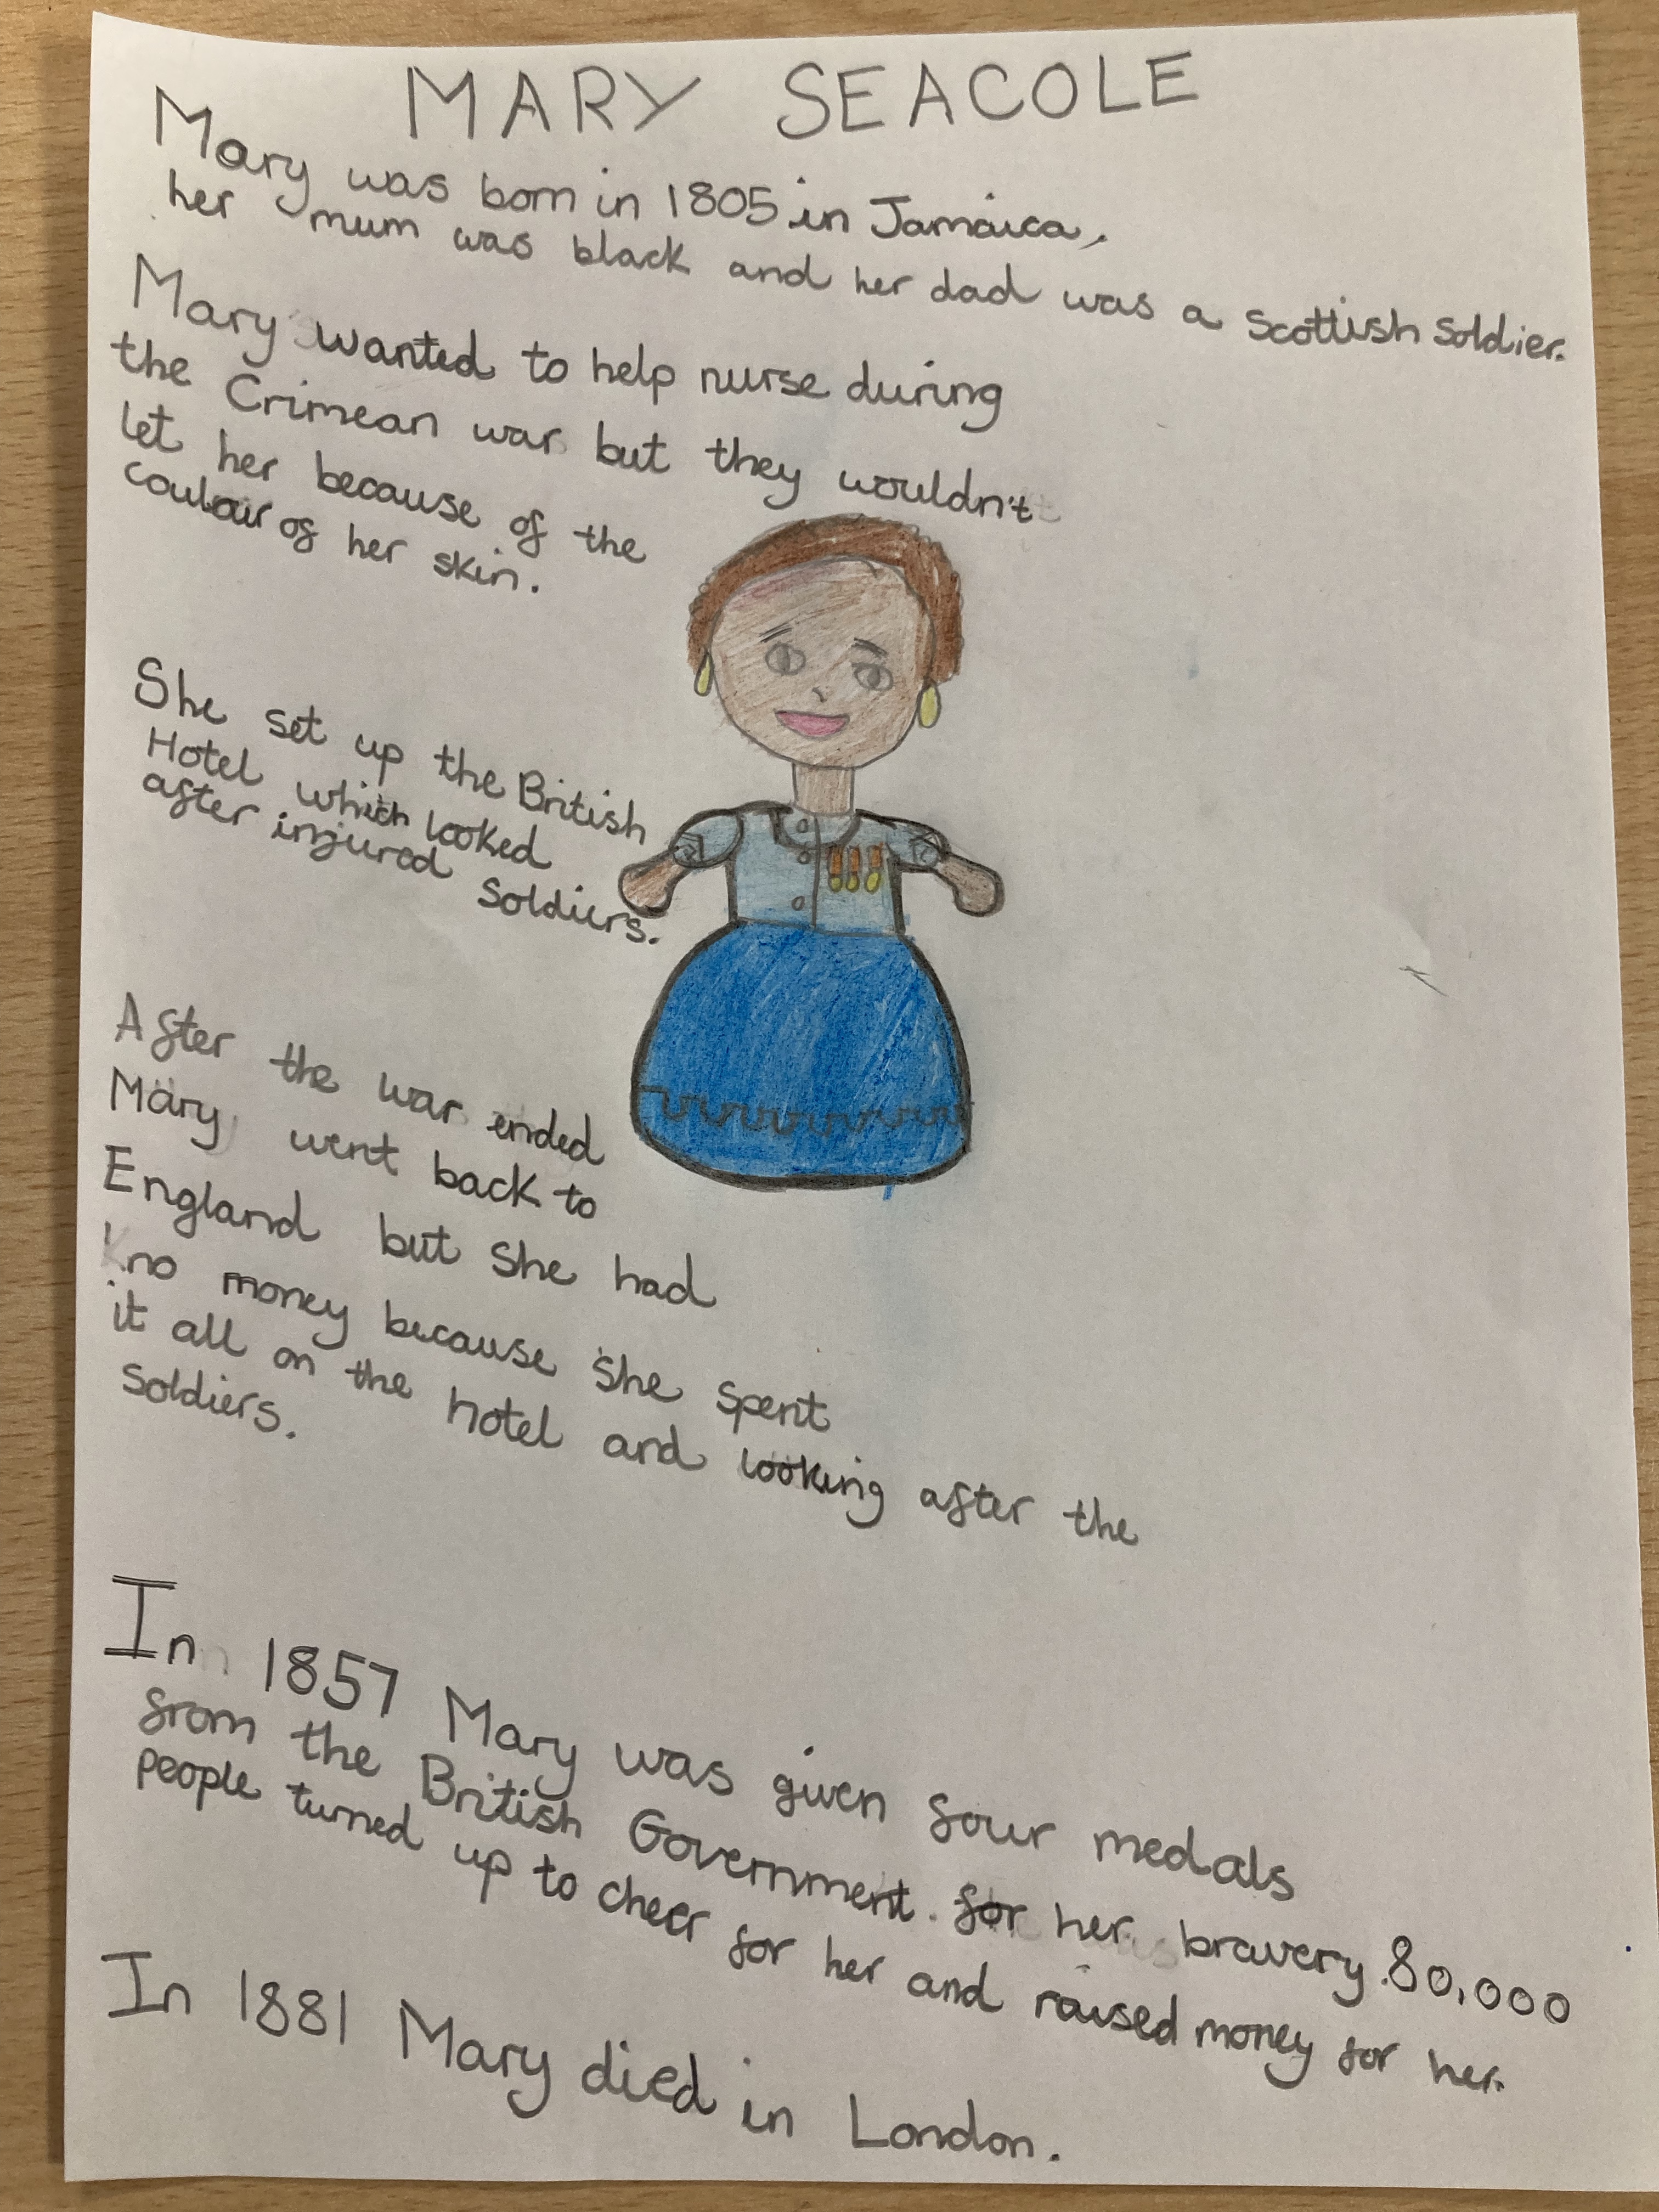 MARY SEACOLE
Mary was born in 1805 in Jamaica,
her mum was black and her dad was a Scottish Soldier.
Mary wanted to help nurse during
the Crimean war but they wouldn't
let her because of the
coulour of her skin.
She set up the British
Hotel which looked
after injured Soldiers.
After the war ended
Mary went back to
England but She had
no money because She Spent
it all on the hotel and looking after the
Soldiers.
In 1857 Mary was given four medals
from the British Government. for her bravery. 80,000
People turned up to cheer for her and raised money for her.
In 1881 Mary died in London.